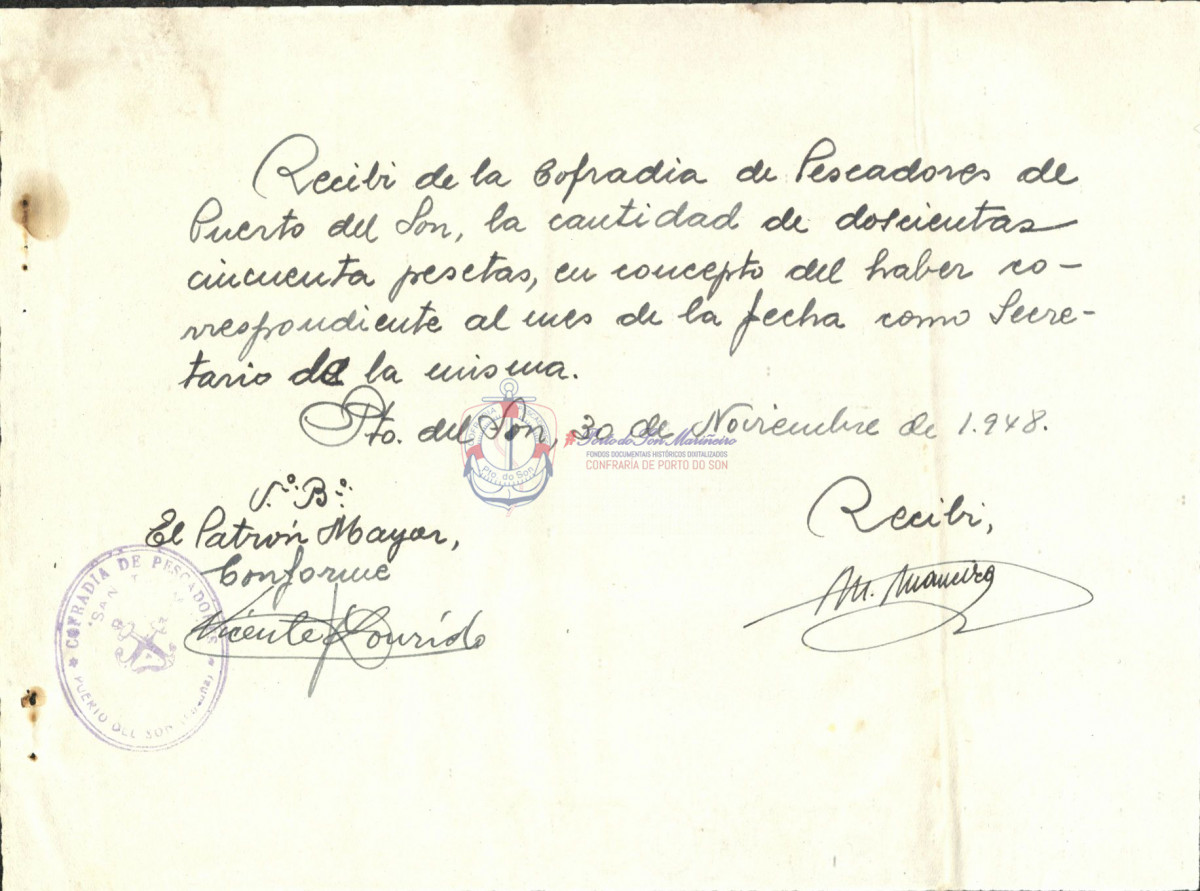 Recibi de la Cofradia de Pescadores de
Puerto del Son, la cantidad de doscientas
cincuenta pesetas, en concepto del haber co-
rrespondiente al mes de la fecha como Secre-
tario de la misma.
Pto. del Son, 30 de Noviembre de 1.948.
#Porto do Son Mariñeiro
FONDOS DOCUMENTAIS HISTÓRICOS DIXITALIZADOS
CONFRARÍA DE PORTO DO SON
Pto. do Son
V.º B.º
El Patrón Mayor,
Conforme
Vicente Lourido
Recibi,
COFRADIA DE PESCADORES
SAN
PUERTO DEL SON